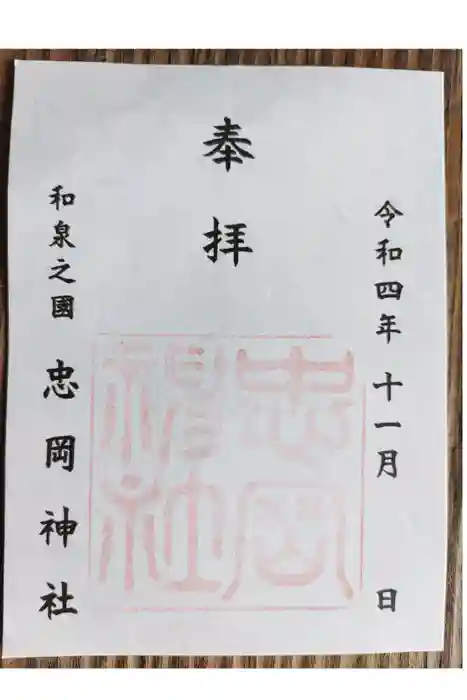 令和四年十一月 日
奉拝
忠岡
神社
和泉之國 忠岡神社